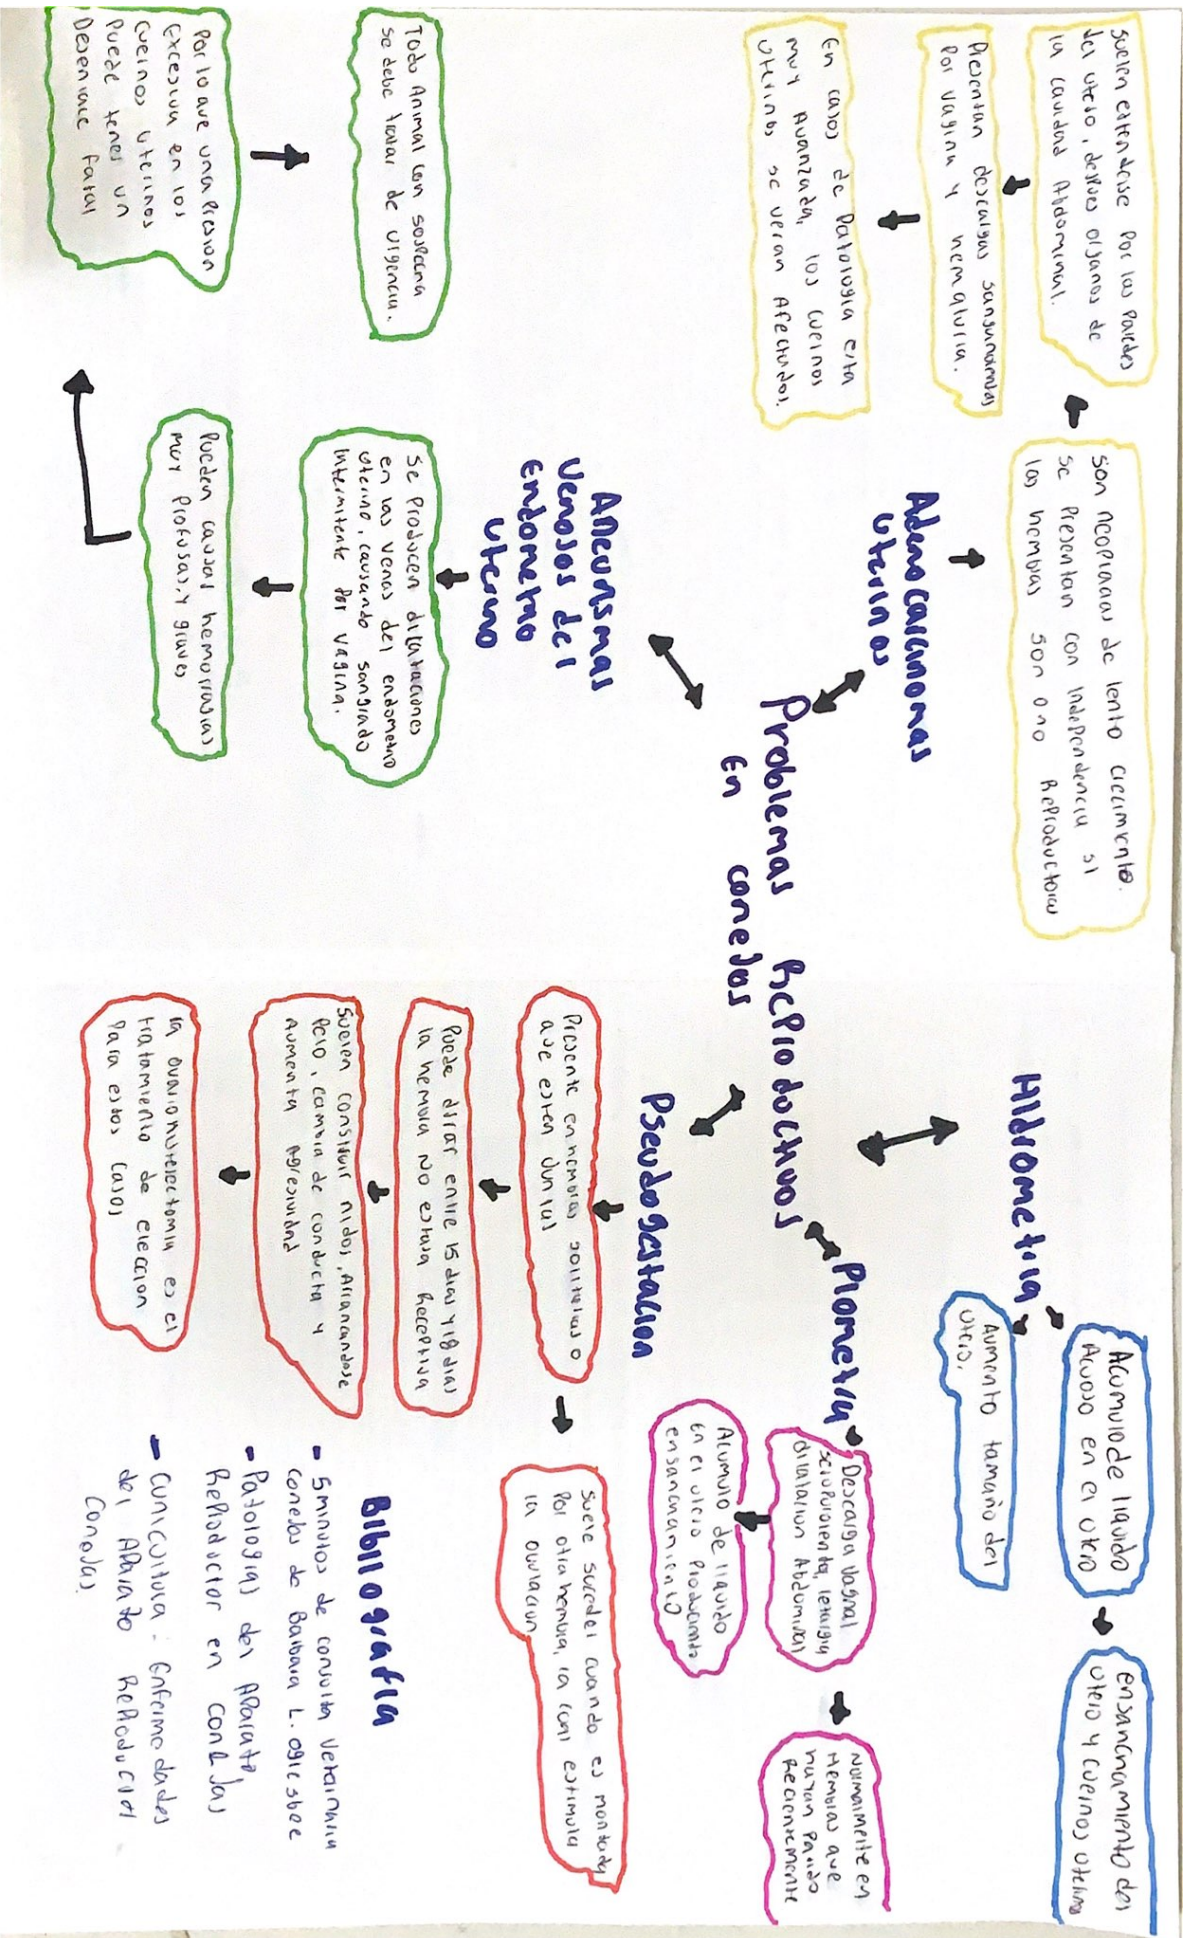 Problemas Reproductivos
En conejos
Adenocarcinomas
Uterinos
Son neoplasias de lento crecimiento.
se Presentan con independencia si
las hembras son o no Reproductoras
suelen extenderse Por las Paredes
del utero, despues organos de
la cavidad Abdominal.
Presentan descargas sanguinolentas
Por vagina y hematuria.
En casos de Patologia esta
muy Avanzada, los cuernos
uterinos se veran Afectados.
Aneurismas
Venosos del
Endometrio
Uterino
Se Producen dilataciones
en las venas del endometrio
uterino, causando sangrado
intermitente Por vagina.
Pueden causar hemorragias
muy Profusas, y graves
Por lo que una Presion
Excesiva en los
cuernos uterinos
Puede tener un
Desenlace Fatal
Todo Animal con sospecha
se debe tratar de urgencia.
Hidrometria
Acumulo de liquido
Acuoso en el utero
ensanchamiento del
utero y cuernos uterinos
Aumento tamaño del
utero.
Piometria
Descarga vaginal
seropurolenta, letargia
dilatacion Abdominal
Normalmente en
Hembras que
hayan Parido
Recientemente
Acumulo de liquido
en el utero Produciendo
ensanchamiento
Pseudogestacion
Presente en hembras solitarias o
que esten Juntas
Suele suceder cuando es montada
Por otra hembra, la cual estimula
la ovulacion
Puede durar entre 15 dias y 18 dias
la hembra No estara Receptiva
Suelen construir nidos, Arrancandose
Pelo, cambia de conducta y
Aumenta Agresividad
la ovariohisterectomia es el
tratamiento de eleccion
Para estos casos
Bibliografia
- 5 minutos de consulta veterinaria
conejos de Barbara L. Oglesbee
- Patologias del Aparato
Reproductor en conejas
- Cunicultura: Enfermedades
del Aparato Reproductor
Conejas.